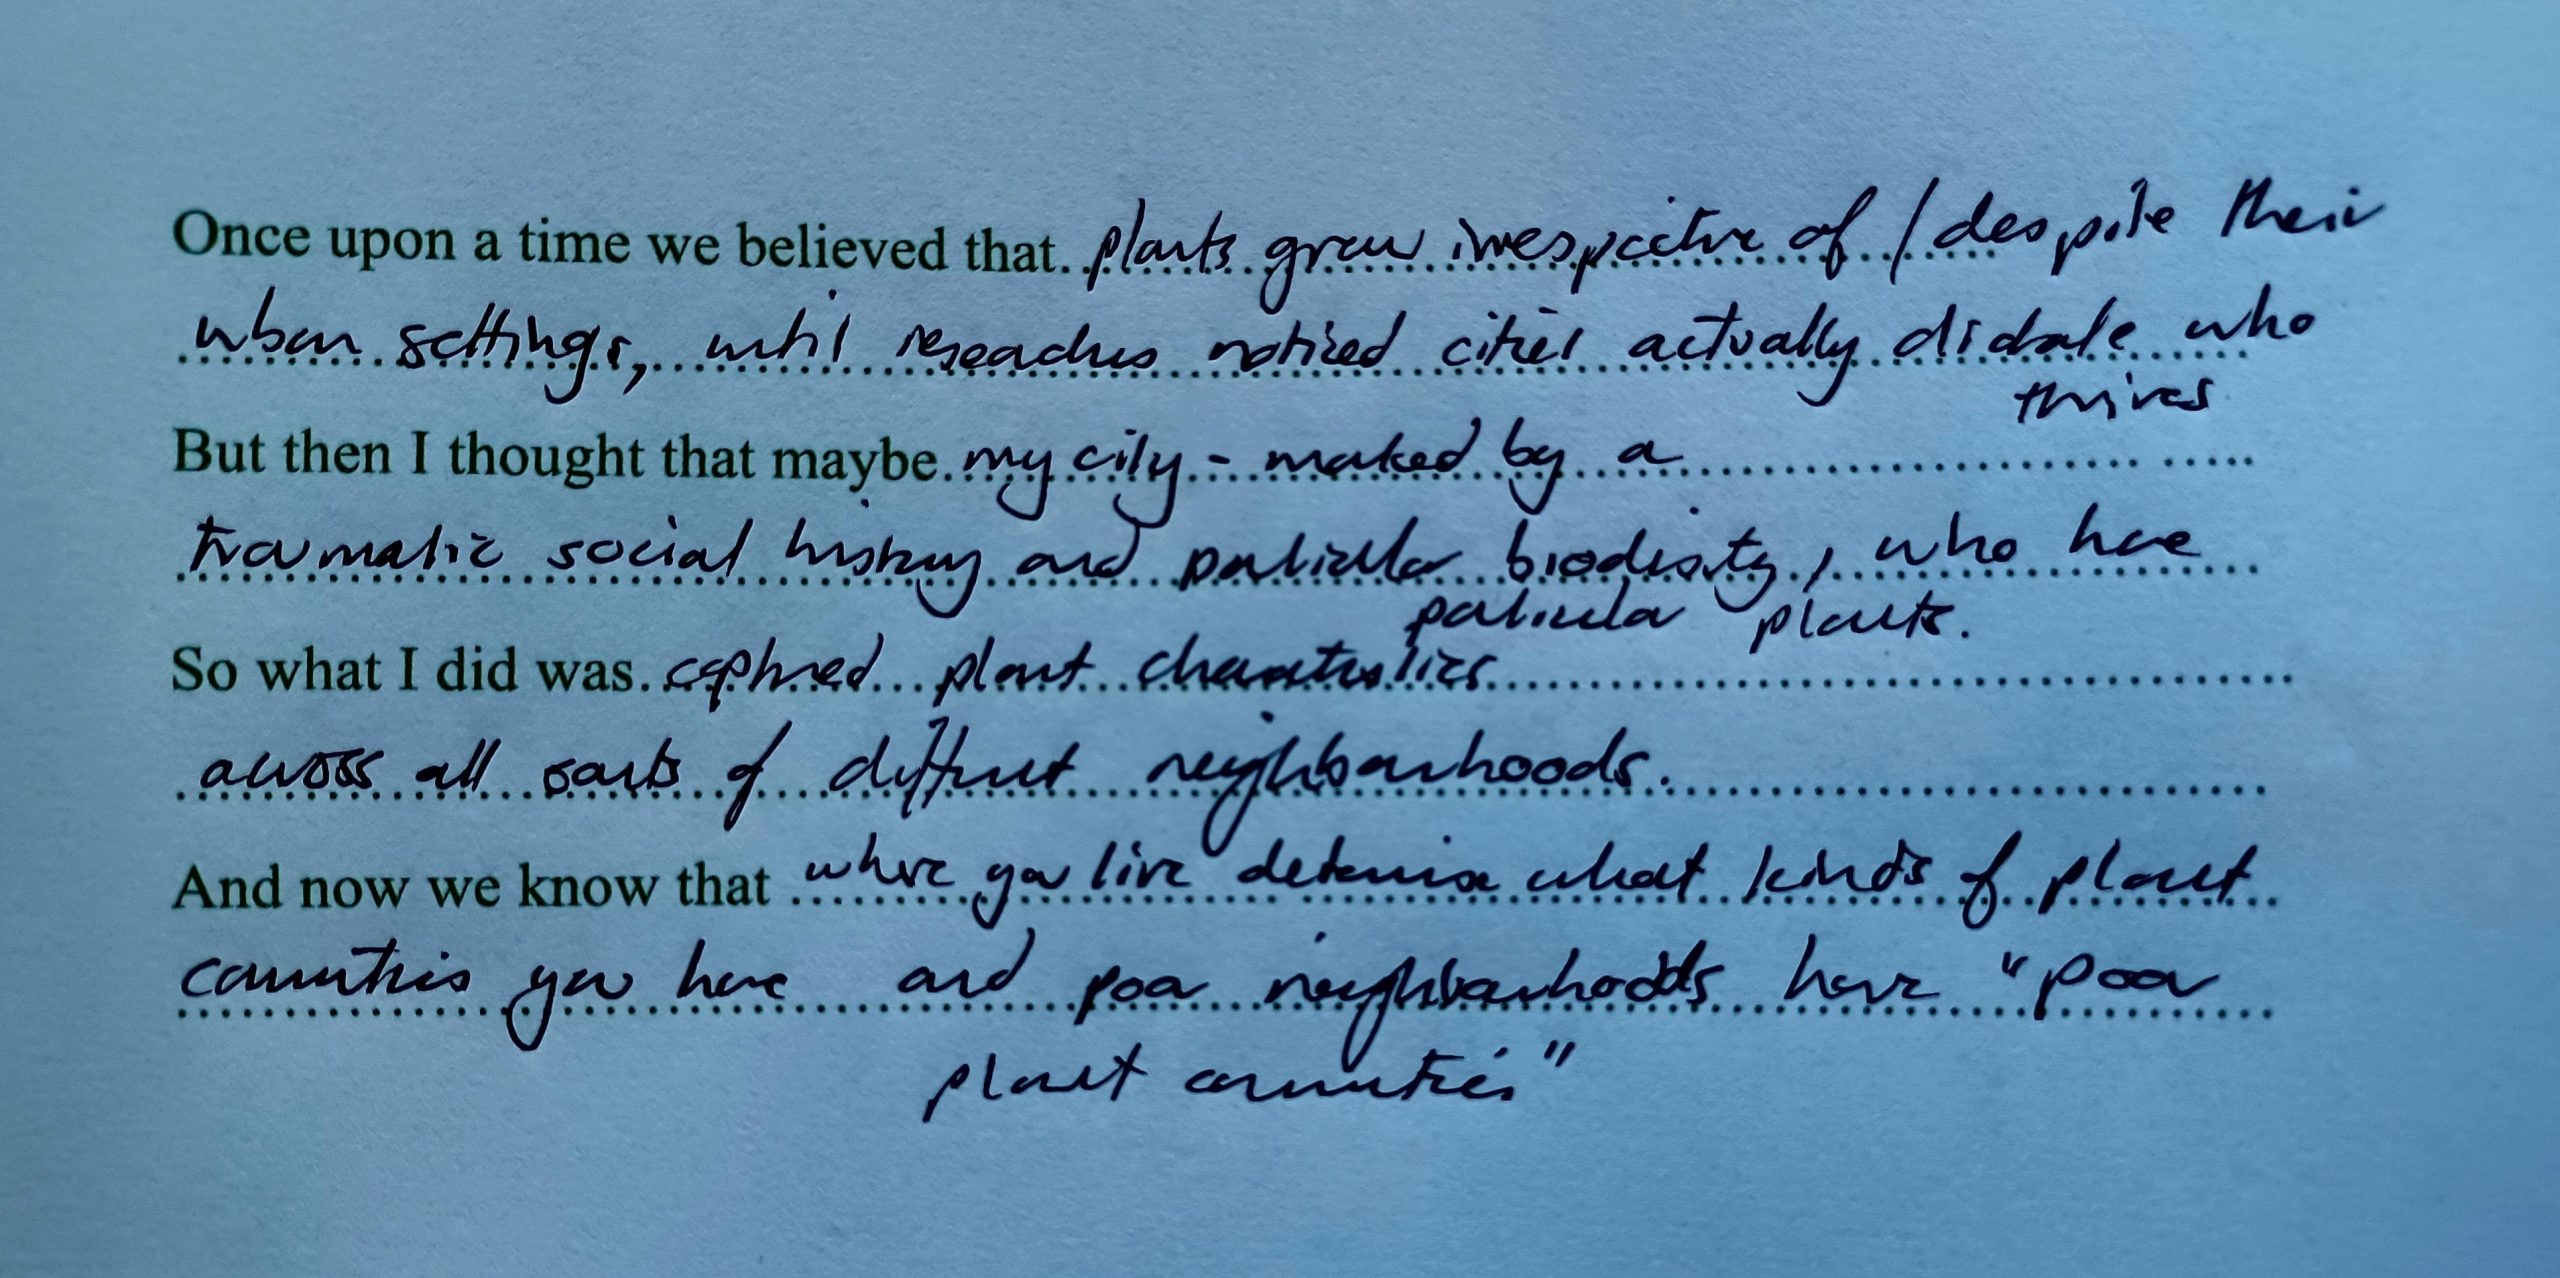 Once upon a time we believed that plants grew irrespective of / despite their
urban settings, until researchers noticed cities actually dictate who
thrives
But then I thought that maybe my city - marked by a
traumatic social history and particular biodiversity, who have
particular plants.
So what I did was captured plant characteristics
across all sorts of different neighbourhoods.
And now we know that where you live determine what kinds of plant
communities you have and poor neighbourhoods have "poor
plant communities"